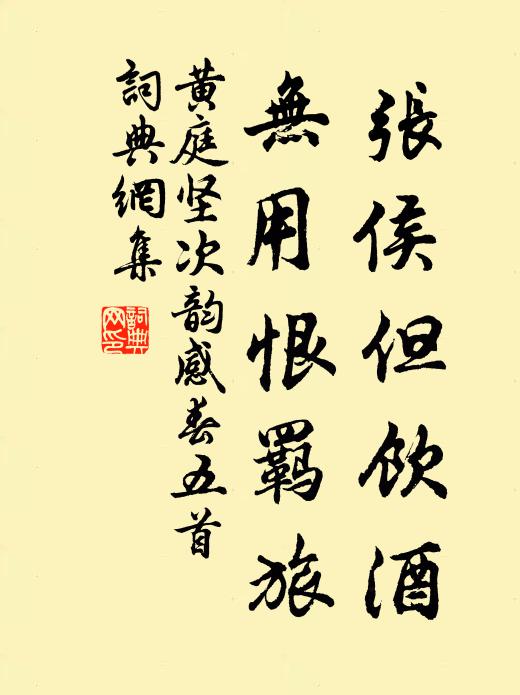 張侯但飲酒
無用恨羈旅
黄庭坚次韵感春五首
詞典網集
詞典网印